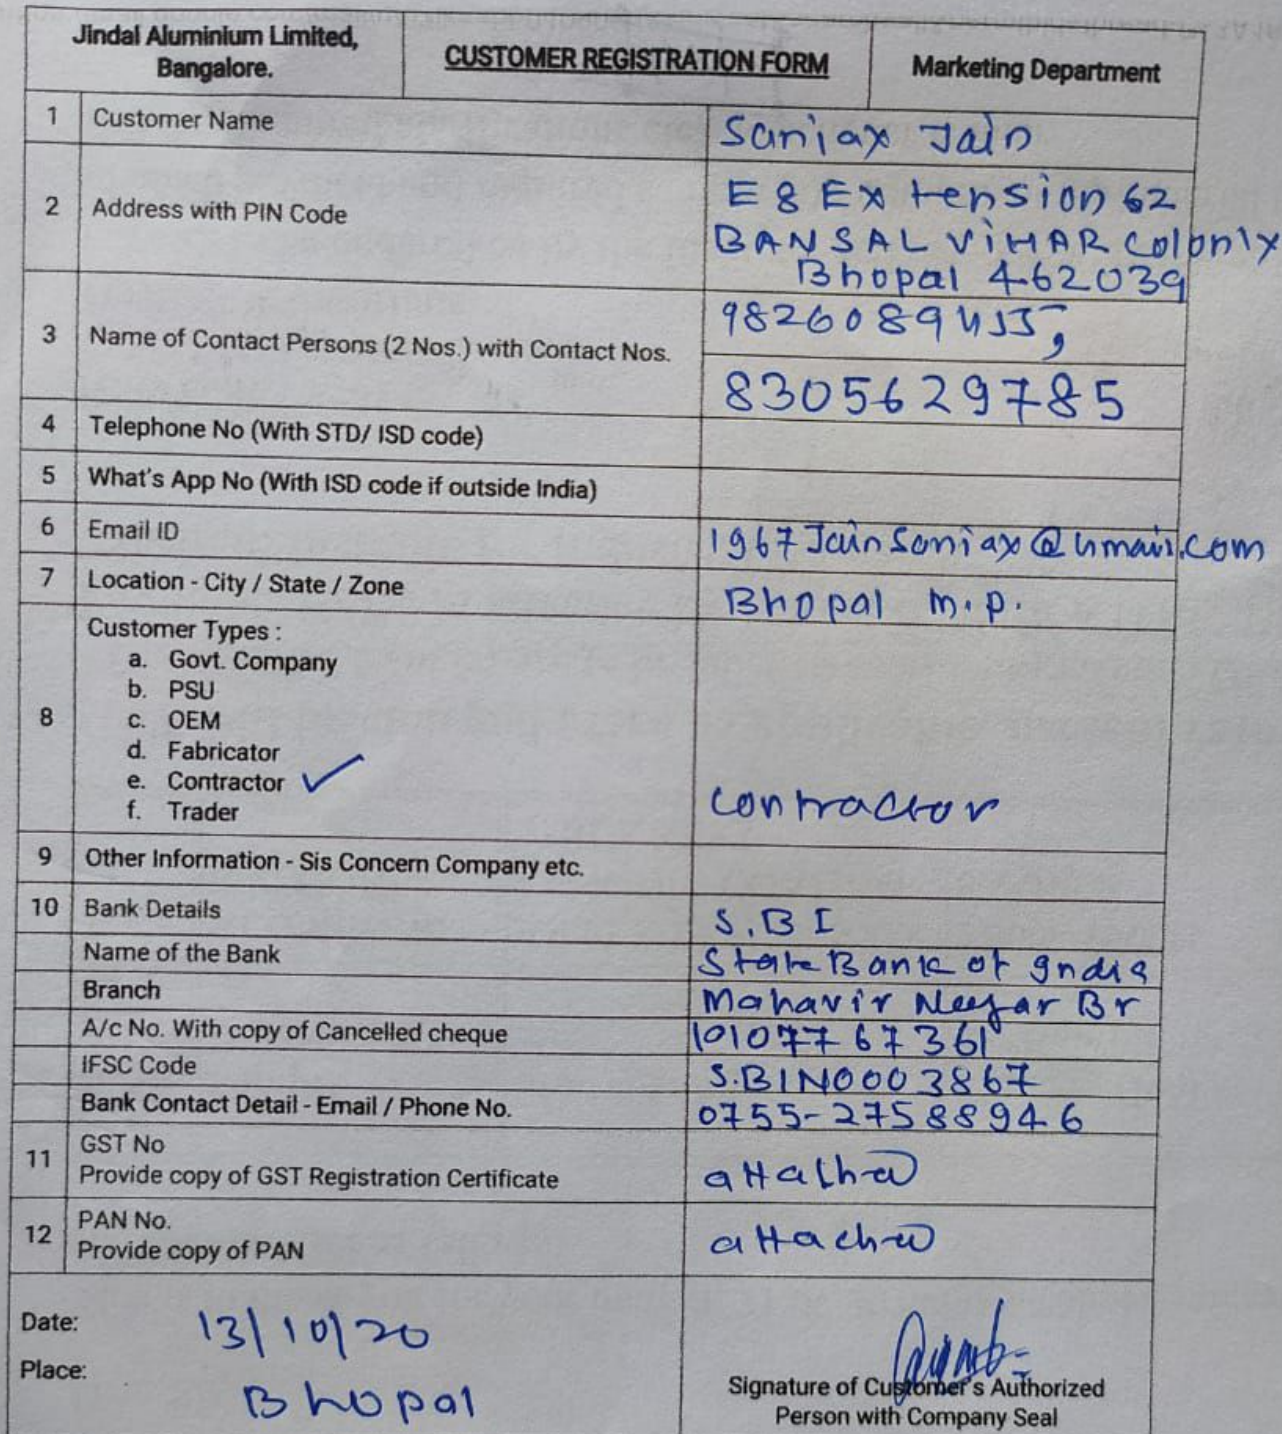 Jindal Aluminium Limited,
Bangalore.
CUSTOMER REGISTRATION FORM
Marketing Department
1 Customer Name Sanjay Jain
2 Address with PIN Code E 8 Extension 62
BANSAL ViHAR Colony
Bhopal 462039
3 Name of Contact Persons (2 Nos.) with Contact Nos.
8305629785
4 Telephone No (With STD/ ISD code)
5 What's App No (With ISD code if outside India)
6 Email ID
7 Location - City / State / Zone Bhopal m.p.
8 Customer Types :
a. Govt. Company
b. PSU
c. OEM
d. Fabricator
e. Contractor ✓
f. Trader
Contractor
9 Other Information - Sis Concern Company etc.
10 Bank Details S.B I
Name of the Bank State Bank of India
Branch Mahavir Br
A/c No. With copy of Cancelled cheque 10107767361
IFSC Code S.BIN0003867
Bank Contact Detail - Email / Phone No. 0755-27588946
11 GST No
Provide copy of GST Registration Certificate
12 PAN No.
Provide copy of PAN
Date: 13/10/20
Place: Bhopal
Signature of Customer's Authorized
Person with Company Seal